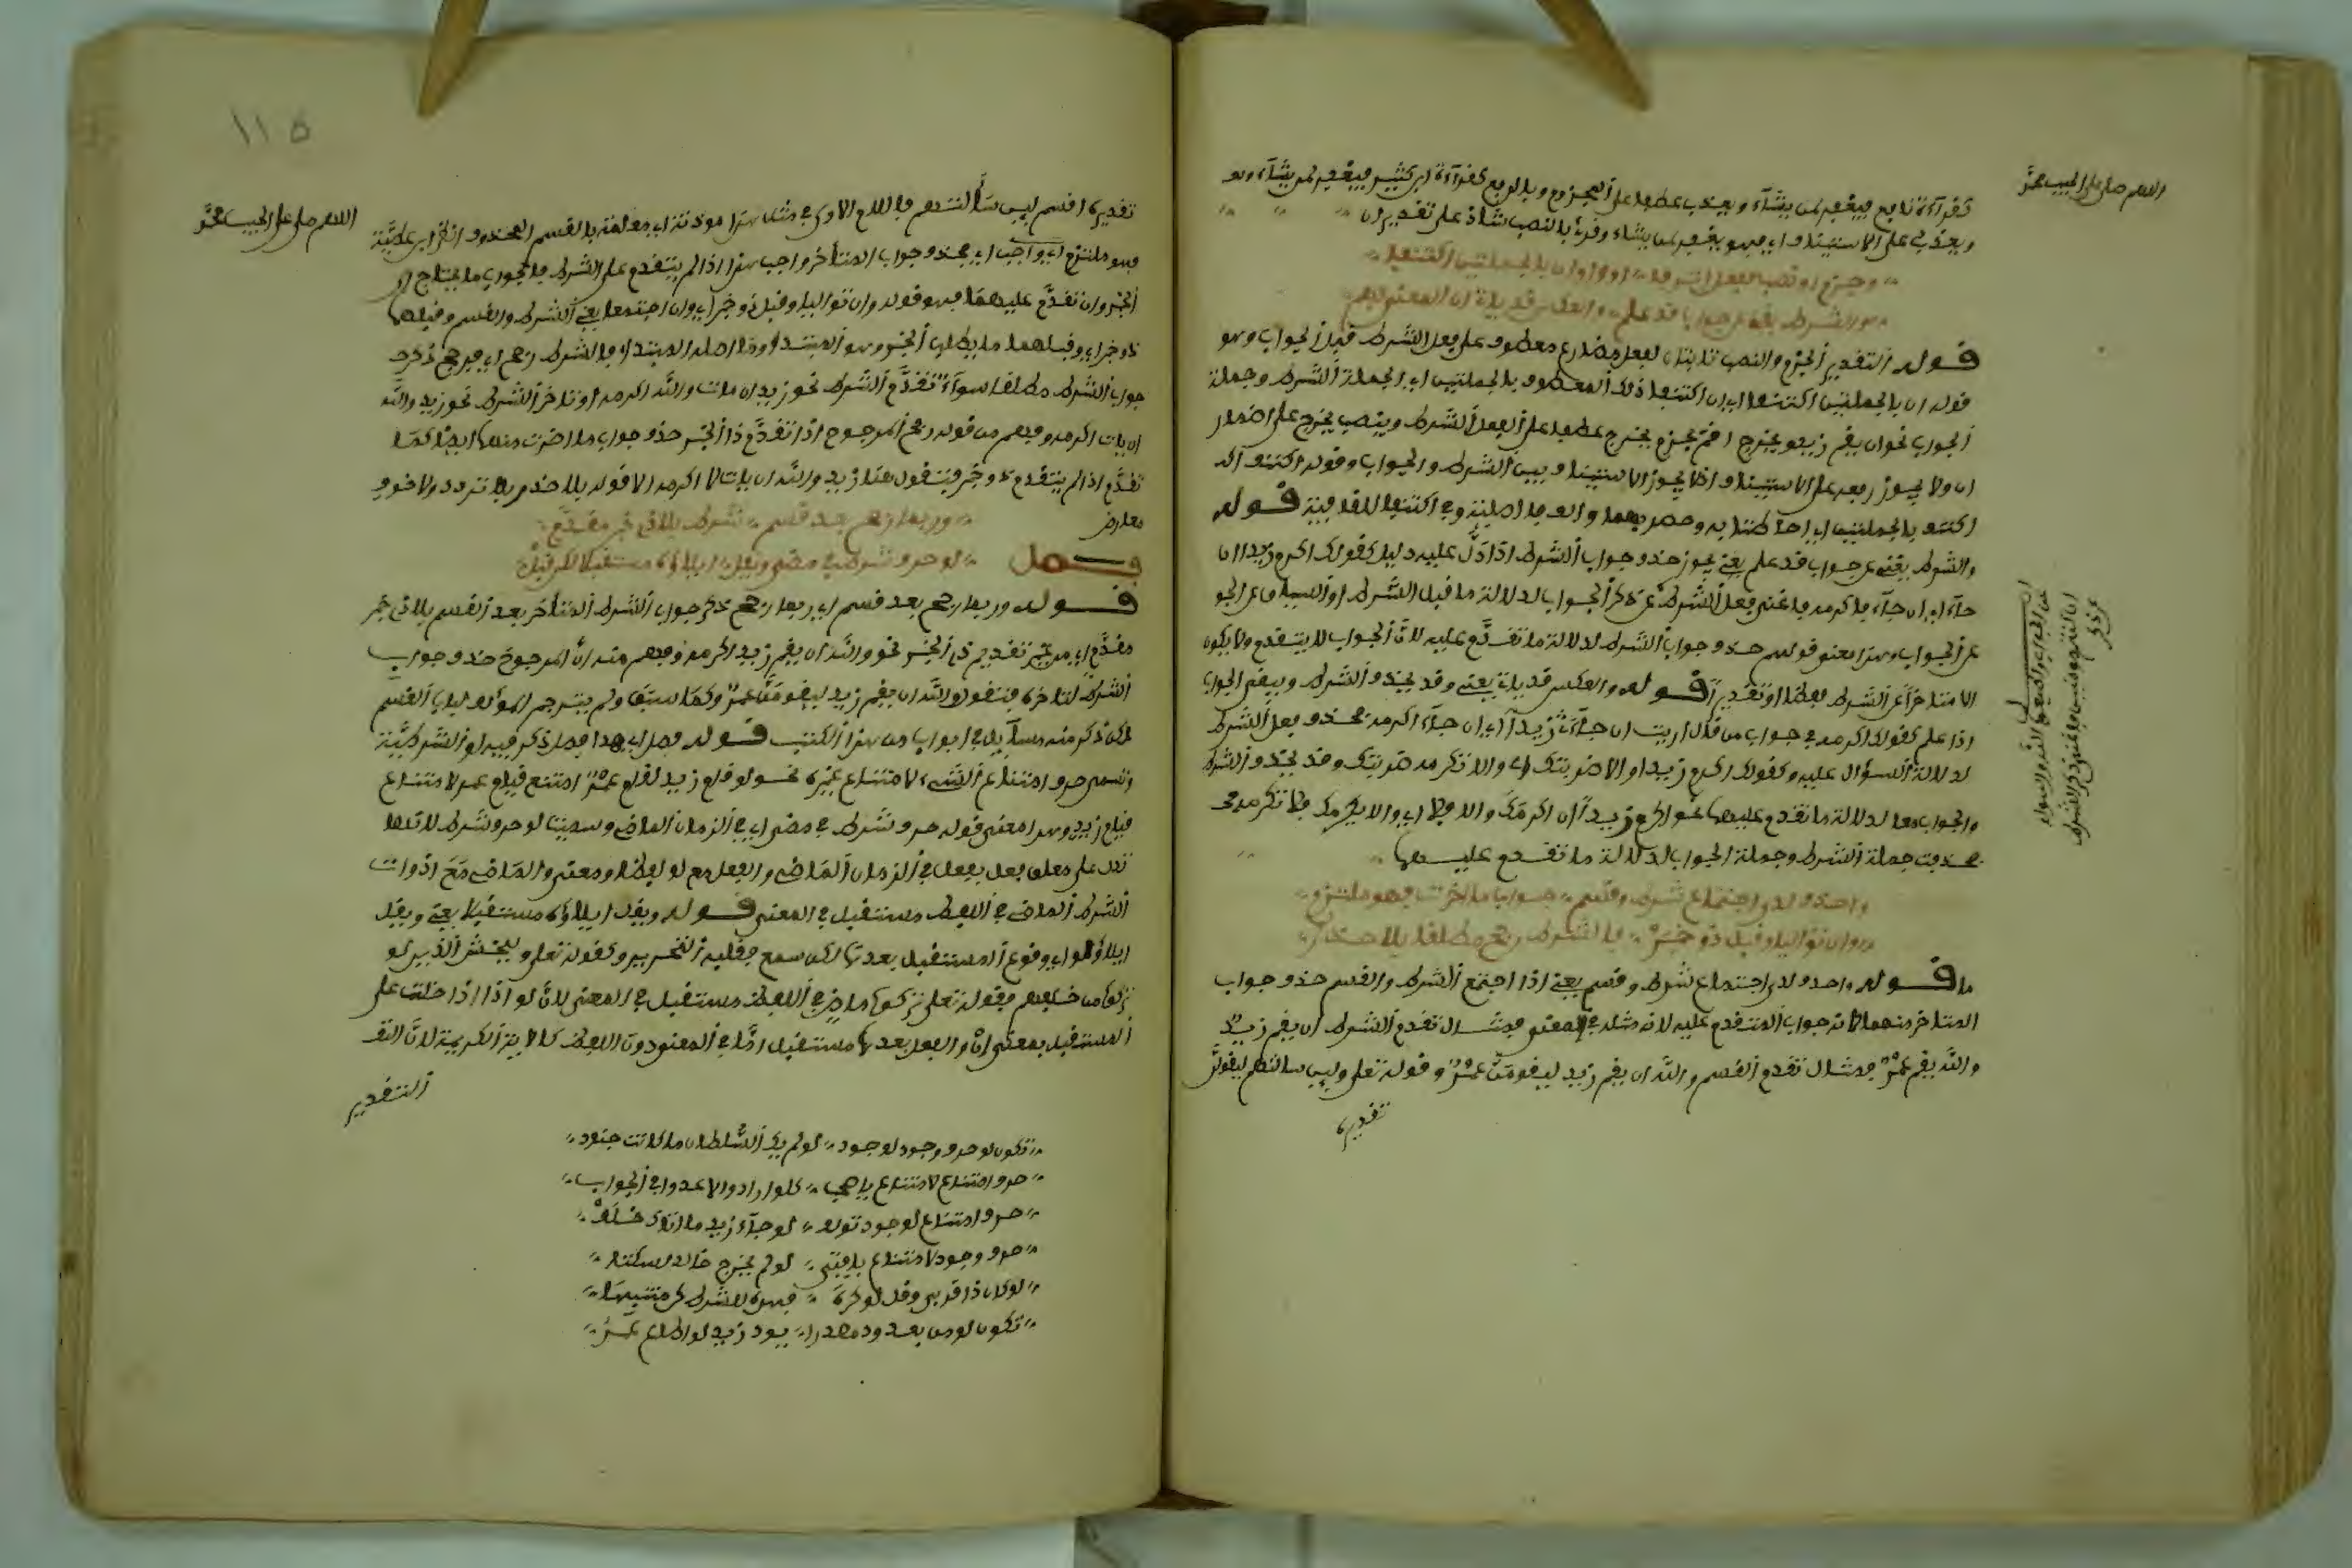 اللهم صل على الحبيب محمد
كقراءة نابع فيغفر لمن يشاء ويعذب عطفا على المجزوم وبالرفع كقراءة ابن كثير فيغفر لمن يشاء وهو
ويعذب على الاستيناف اي فهو يغفر لمن يشاء وقرئ بالنصب شاذ على تقدير ان
وجزم او نصب لفعل اثر فا او واو ان بالجملتين اكتنفا
والشرط يغني عن جواب قد علم والعكس قد ياتي ان المعنى فهم
قوله التقدير الجزم والنصب ثابتان لفعل مضارع معطوف على فعل الشرط قبل الجواب وهو
قوله ان بالجملتين اكتنفا اي ان اكتنف ذلك المعطوف بالجملتين اي الجملة الشرط وجملة
الجواب نحو ان يقم زيد ويخرج اقم بجزم يخرج عطفا على الفعل الشرط وينصب يخرج على اضمار
ان ولا يجوز رفعه على الاستيناف اذ لا يجوز الاستيناف بين الشرط والجواب وقوله اكتنف اي
اكتنف بالجملتين اي احاطتا به وحصر بهما والف اصلية وفي اكتنفا للقافية قوله
والشرط يغني عن جواب قد علم يعني يجوز حذف جواب الشرط اذا دل عليه دليل كقولك اكرم زيدا ان
جاء اي ان جاء فاكرمه فاغنى فعل الشرط عن ذكر الجواب لدلالة ما قبل الشرط او السياق على الجو
عن الجواب وهذا معنى قولهم حذف جواب الشرط لدلالة ما تقدم عليه لان الجواب لا يتقدم ولا يكون
الا متاخرا عن الشرط لفظا او تقديرا قوله والعكس قد ياتي يعني وقد يحذف الشرط ويبقى الجواب
اذا علم كقولك اكرمه في جواب من قال اريت ان جاءك زيد اي ان جاء اكرمه بحذف فعل الشرط
لدلالة السؤال عليه وكقولك اكرم زيدا والا ضربتك اي والا تكرمه ضربتك وقد يحذف الشرط
والجواب معا لدلالة ما تقدم عليهما نحو اكرم زيدا ان اكرمك والا فلا اي والا يكرمك فلا تكرمه
فحذفت جملة الشرط وجملة الجواب لدلالة ما تقدم عليهما
واحذف لدى اجتماع شرط وقسم جواب ما اخرت فهو ملتزم
وان تواليا وقبل ذو خبر فالشرط رجح مطلقا بلا حذر
قوله واحذف لدى اجتماع شرط وقسم يعني اذا اجتمع الشرط والقسم حذف جواب
المتاخر منهما لان جواب المتقدم عليه لانه مثله في المعنى فمثال تقدم الشرط ان يقم زيد
والله يقم عمرو ومثال تقدم القسم والله ان يقم زيد ليقومن عمرو وقوله تعلى ولين سالتهم ليقولن
تقديره
١١٥
اللهم صل على الحبيب محمد
تقديره اقسم لين سألتهم فاللام الاولى في مثل هذا موذنة اي معلمة بالقسم المحذوف انظر ابن عطية
فهو ملتزم اي واجب اي بحذف جواب المتأخر واجب هذا اذا لم يتقدم على الشرط والجواب ما يحتاج الى
الخبر وان تقدم عليهما فهو قوله وان تواليا وقبل ذو خبر اي وان اجتمعا يعني الشرط والقسم وقبلهما
ذو خبر اي وقبلهما ما يطلب الخبر وهو المبتدا وما اصله المبتدا فالشرط رجح اي فيرجح ذكر
جواب الشرط مطلقا سواء تقدم الشرط نحو زيد ان مات والله اكرمه او تاخر الشرط نحو زيد والله
ان يات اكرمه وفهم من قوله رجح المرجوح اذا تقدم ذا الخبر حذف جواب ما اخرت منهما ايضا كما
تقدم اذا لم يتقدم ذو خبر فتقول هنا زيد والله ان يات لاكرمنه الا قوله بلا حذر بلا تردد ولا خوف
معارض
وربما رجح بعد قسم شرط بلا ذي خبر مقدم
فصل لو حرف شرط في مضي ويقل ايلاؤه مستقبلا لكن قبل
قوله وربما رجح بعد قسم اي ربما رجح ذكر جواب الشرط المتأخر بعد القسم بلا ذي خبر
مقدم اي من غير تقديم ذي الخبر نحو والله ان يقم زيد اكرمه وفهم منه ان المرجوح حذف جواب
الشرط لتاخره فتقول والله ان يقم زيد ليقومن عمرو كما سبق ولم يترجم المؤلف لباب القسم
لكن ذكر منه مسآيل في ابواب من هذا الكتب قوله فصل اي هذا فصل ذكر فيه لو الشرطية
وتسمى حرف امتناع الشيء لامتناع غيره نحو لو قام زيد لقام عمرو امتنع قيام عمرو لامتناع
قيام زيد وهذا معنى قوله حرف شرط في مضي اي في الزمان الماضي وسميت لو حرف شرط لانها
تدل على معلق فعل بفعل في الزمان الماضي والفعل مع لو لفظا ومعنى والماضي مع ادوات
الشرط الماضي في اللفظ مستقبل في المعنى قوله ويقل ايلاؤه مستقبلا يعني ويقل
ايلاؤها اي وقوع المستقبل بعدها لكن سمع فقبل التحرير وكقوله تعلى وليخش الذين لو
تركوا من خلفهم فقوله تعلى تركوا ماض في اللفظ مستقبل في المعنى لان لو اذا دخلت على
المستقبل بمعنى ان والفعل بعدها مستقبل اما في المعنى دون اللفظ كالاية الكريمة لان التقد
التقدير
تكون لو حرف وجود لوجود لو لم يك السلطان ما كانت جنود
حرف امتناع لامتناع يا صحب كلو ارادوا لاعدوا في الجواب
حرف امتناع لوجود تولف لو جاء زيد ما اتاك خلف
حرف وجود لامتناع يا فتى لو لم يخرج خالد لسكتا
لو كان ذا قربى وقل لو كره فهذه للشرط كن منتبها
تكون لو من بعد ود مصدرا يود زيد لو اطاع عمرا